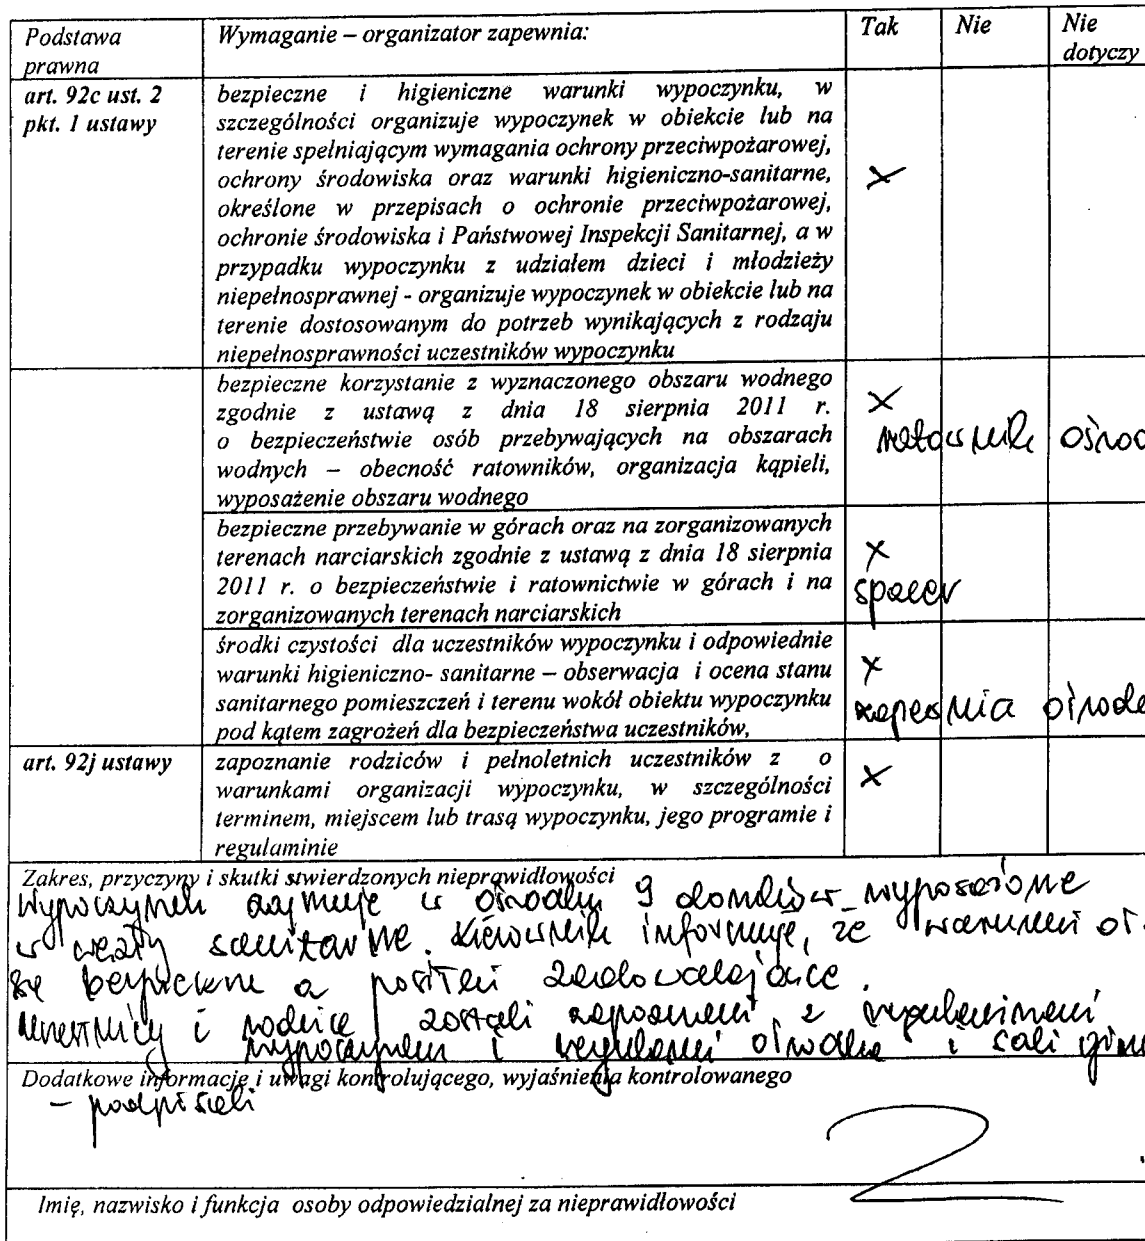 Podstawa prawna	Wymaganie – organizator zapewnia:	Tak	Nie	Nie dotyczy
art. 92c ust. 2
pkt. 1 ustawy
bezpieczne i higieniczne warunki wypoczynku, w
szczególności organizuje wypoczynek w obiekcie lub na
terenie spełniającym wymagania ochrony przeciwpożarowej,
ochrony środowiska oraz warunki higieniczno-sanitarne,
określone w przepisach o ochronie przeciwpożarowej,
ochronie środowiska i Państwowej Inspekcji Sanitarnej, a w
przypadku wypoczynku z udziałem dzieci i młodzieży
niepełnosprawnej - organizuje wypoczynek w obiekcie lub na
terenie dostosowanym do potrzeb wynikających z rodzaju
niepełnosprawności uczestników wypoczynku
x
bezpieczne korzystanie z wyznaczonego obszaru wodnego
zgodnie z ustawą z dnia 18 sierpnia 2011 r.
o bezpieczeństwie osób przebywających na obszarach
wodnych – obecność ratowników, organizacja kąpieli,
wyposażenie obszaru wodnego
x
ratownik ośrod
bezpieczne przebywanie w górach oraz na zorganizowanych
terenach narciarskich zgodnie z ustawą z dnia 18 sierpnia
2011 r. o bezpieczeństwie i ratownictwie w górach i na
zorganizowanych terenach narciarskich
x
spacer
środki czystości dla uczestników wypoczynku i odpowiednie
warunki higieniczno- sanitarne – obserwacja i ocena stanu
sanitarnego pomieszczeń i terenu wokół obiektu wypoczynku
pod kątem zagrożeń dla bezpieczeństwa uczestników,
x
zapewnia ośrode
art. 92j ustawy
zapoznanie rodziców i pełnoletnich uczestników z o
warunkami organizacji wypoczynku, w szczególności
terminem, miejscem lub trasą wypoczynku, jego programie i
regulaminie
x
Zakres, przyczyny i skutki stwierdzonych nieprawidłowości
Wypoczynek zajmuje w ośrodku 9 domków wyposażone
w węzły sanitarne. Kierownik informuje, że warunki oś
są bezpieczne a posiłki zadowalające.
uczestnicy i rodzice zostali zapoznani z regulaminami
wypoczynku i regulami ośrodka i sali gim
Dodatkowe informacje i uwagi kontrolującego, wyjaśnienia kontrolowanego
– podpisali
Imię, nazwisko i funkcja osoby odpowiedzialnej za nieprawidłowości